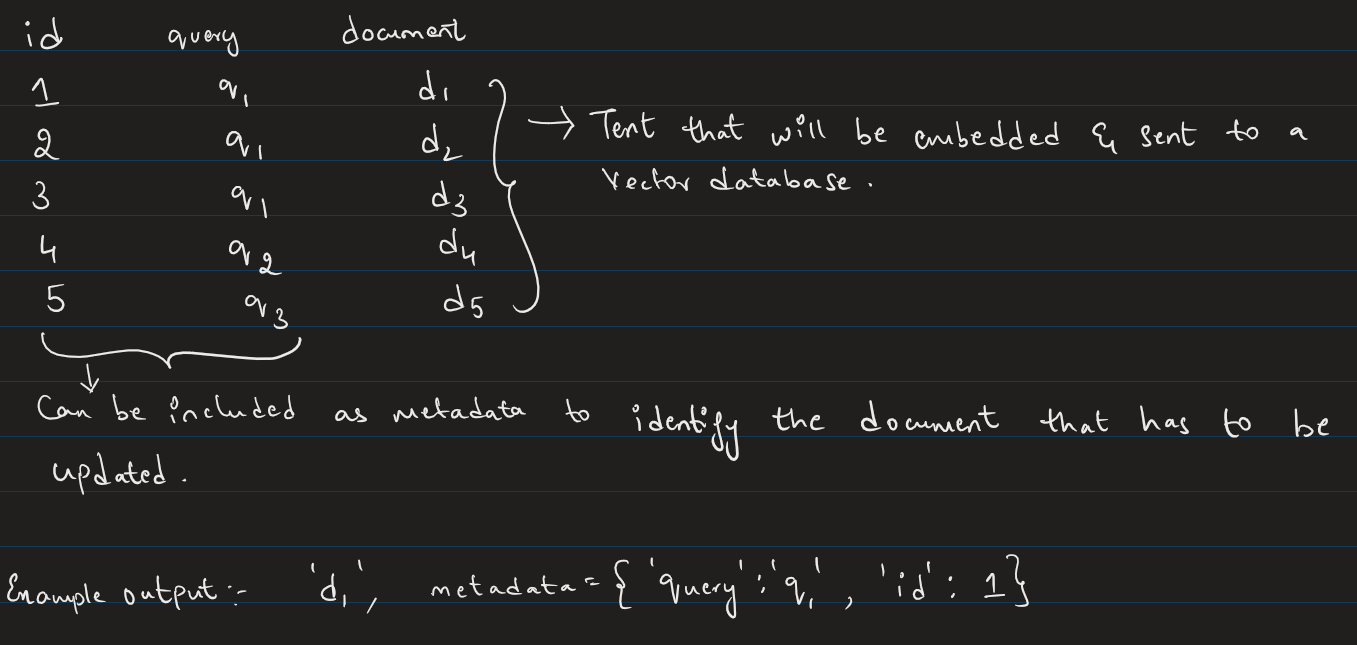 id query document
1 q1 d1
2 q1 d2
3 q1 d3
4 q2 d4
5 q3 d5
→ Text that will be embedded & sent to a
vector database.
Can be included as metadata to identify the document that has to be
updated.
Example output:- 'd1', metadata={'query':'q1', 'id': 1}